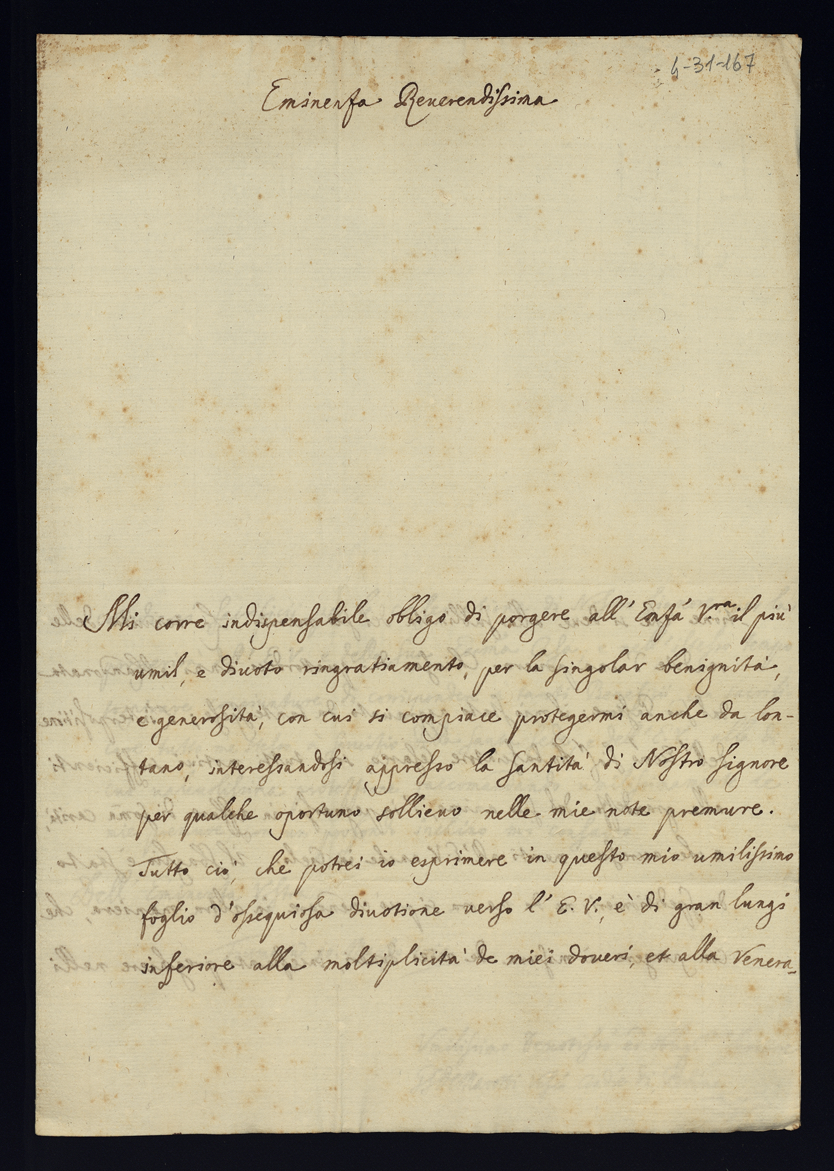 4-31-167
Eminenza Reverendissima
Mi corre indispensabile obligo di porgere all' Emza V.ra il più
umil, e divoto ringratiamento, per la singolar benignità,
e generosità, con cui si compiace protegermi anche da lon-
tano, interessandosi appresso la santità di Nostro Signore
per qualche oportuno sollievo nelle mie note premure.
Tutto ciò, che potrei io esprimere in questo mio umilissimo
foglio d'ossequiosa divotione verso l' E. V., è di gran lungi
inferiore alla moltiplicità de miei doveri, et alla Venera-